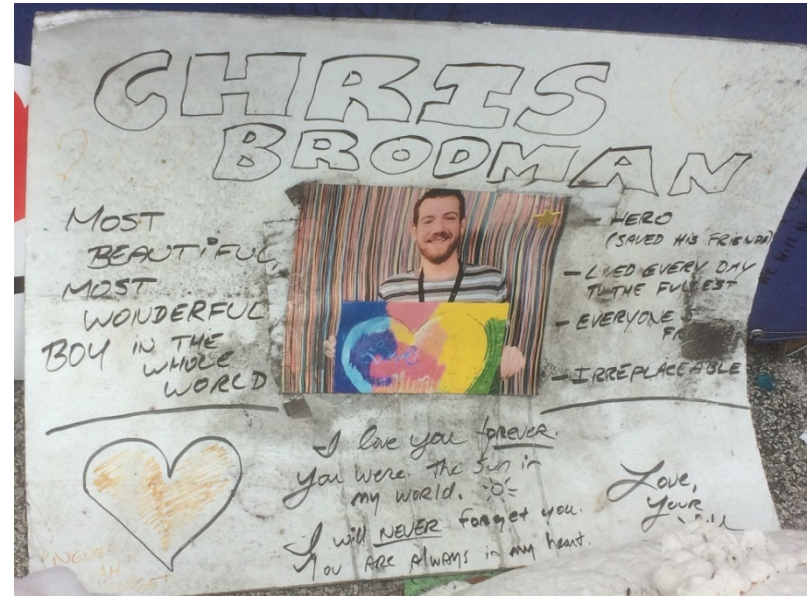 CHRIS
BRODMAN
MOST
BEAUTIFUL,
MOST
WONDERFUL
BOY IN THE
WHOLE
WORLD
- HERO
(SAVED HIS FRIENDS)
- LIVED EVERY DAY
TO THE FULLEST
- EVERYONE'S
- IRREPLACEABLE
I love you forever.
You were the sun in
my world.
I will NEVER forget you.
You ARE AlwAys in my heart.
Love,
Your